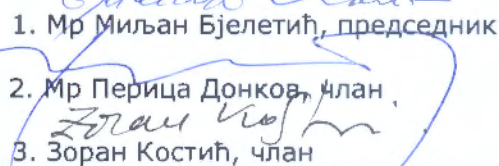 1. Мр Миљан Бјелетић, председник
2. Мр Перица Донков, члан
Zoran Kos
3. Зоран Костић, члан